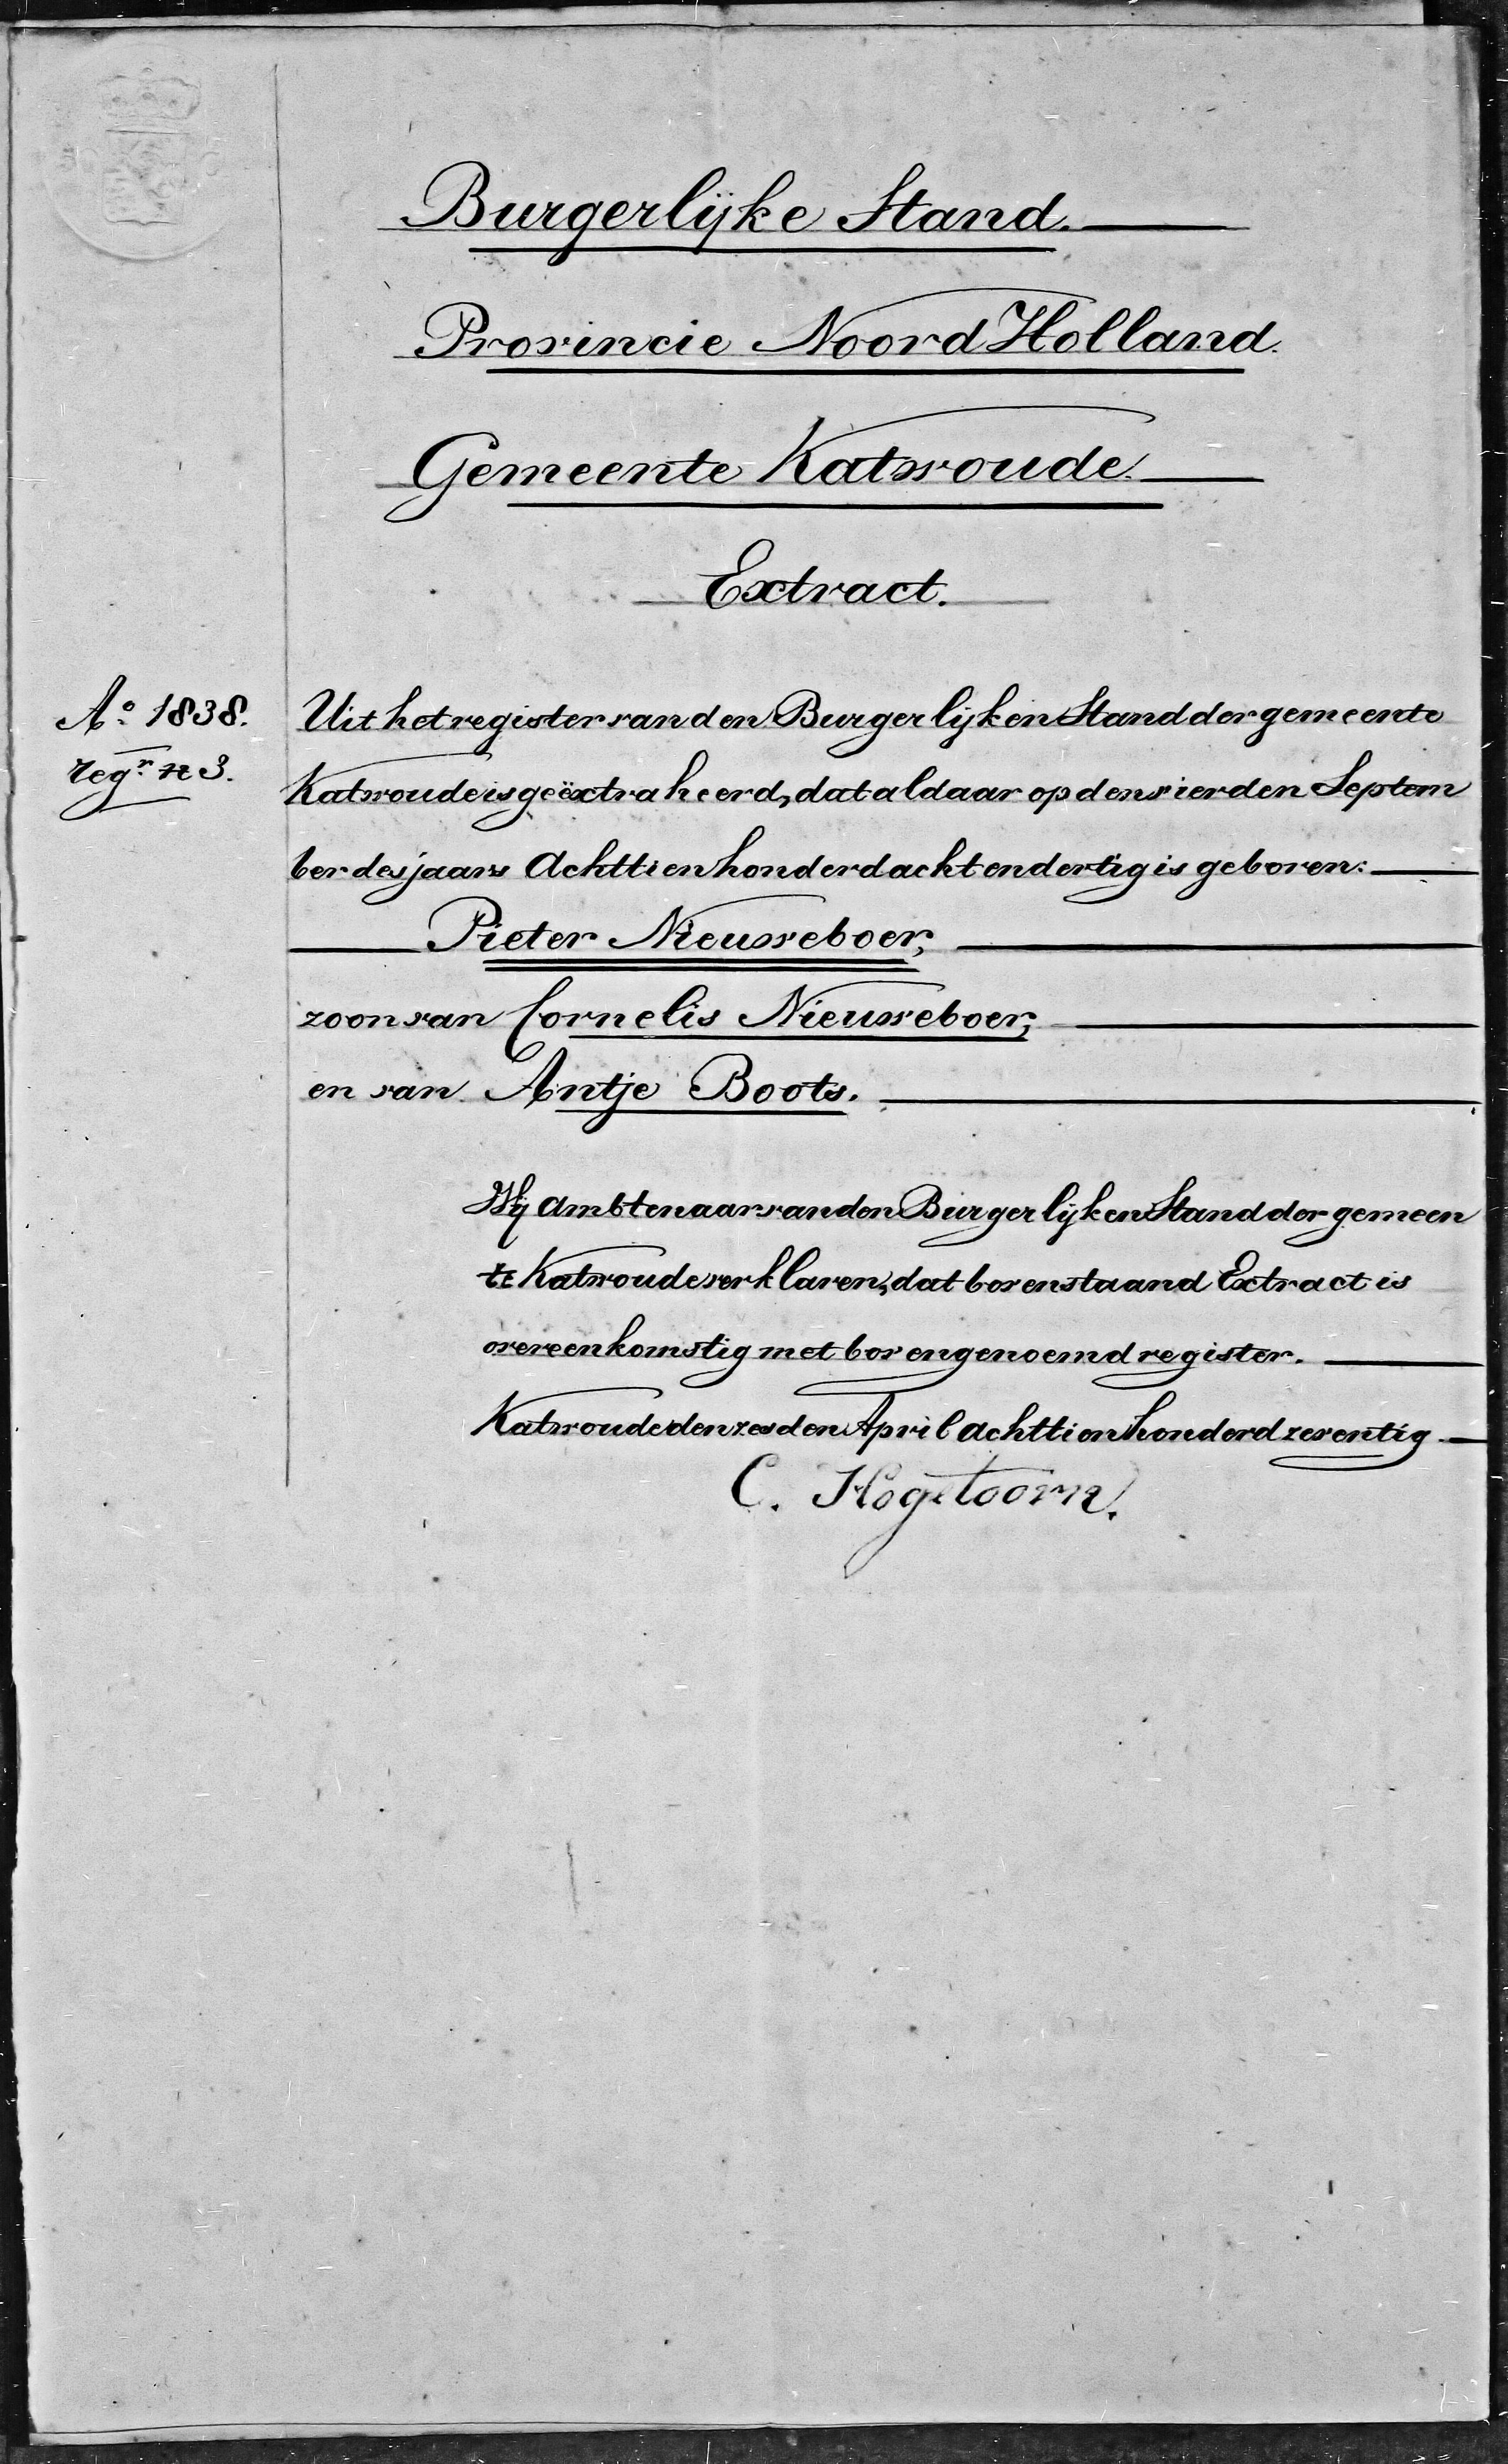 Burgerlijke Stand.
Provincie Noord Holland.
Gemeente Katwoude.
Extract.
Ao. 1838.
Regr. n 3.
Uit het register van den Burgerlijken Stand der gemeente
Katwoude is geëxtraheerd, dat aldaar op den vierden Septem
ber des jaars Achttienhonderd acht en dertig is geboren:
Pieter Nieuweboer,
zoon van Cornelis Nieuweboer,
en van Antje Boots.
Wij Ambtenaar van den Burgerlijken Stand der gemeen
te Katwoude verklaren, dat bovenstaand Extract is
overeenkomstig met bovengenoemd register.
Katwoude den zesden April achttienhonderd zeventig
C. Hogetoorn.